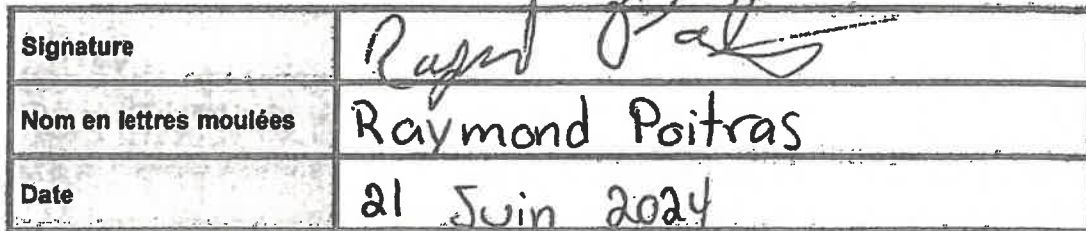 Signature
Nom en lettres moulées Raymond Poitras
Date 21 Juin 2024